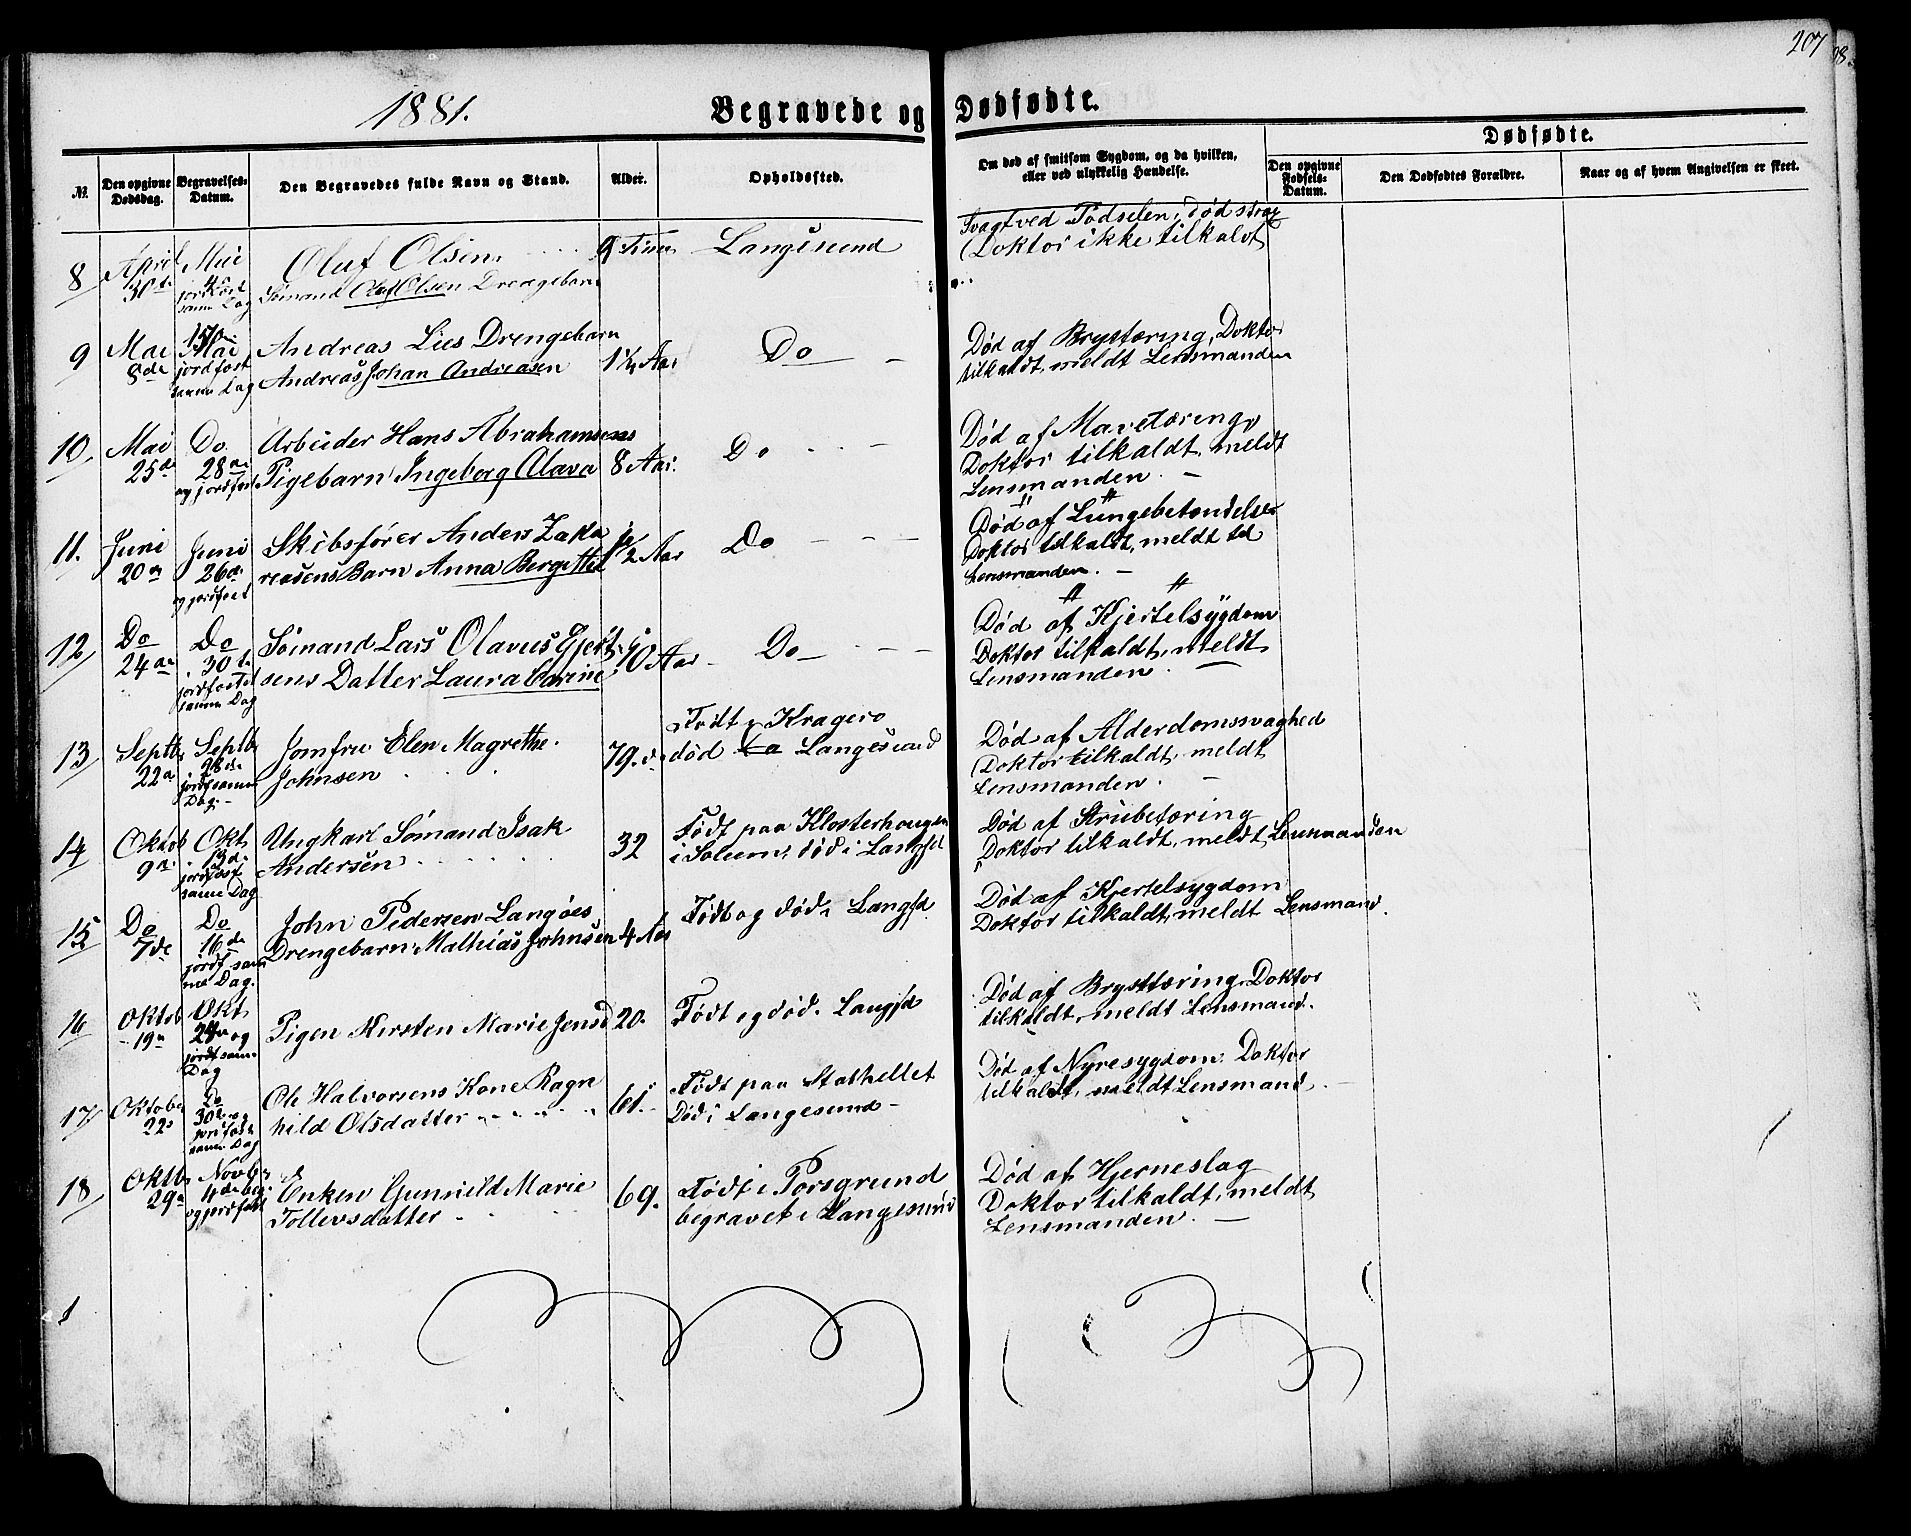 207
1881.
Begravede og Dødfødte.
Dødfødte.
№
Den opgivne Dødsdag.
Begravelses-Datum.
Den Begravedes fulde Navn og Stand.
Alder.
Opholdssted.
Om død af smitsom Sygdom, og da hvilken, eller ved ulykkelig Hændelse.
Den opgivne Fødsels-Datum.
Den Dødfødtes Forældre.
Naar og af hvem Angivelsen er skeet.
8
April
30te
Mai
jordfæst
samme Dag
Oluf Olsen
Sømand Oluf Olsen Drengebarn
9 Timer
Langesund
Svagt ved Fødselen, død strax
Doktor ikke tilkaldt
9
Mai
8de
15de
Mai
jordfæst
samme Dag
Andreas Lies Drengebarn
Andreas Johan Andreasen
1½ Aar
Do
Død af Brysttæring, Doktor
tilkaldt, meldt Lensmanden
10
Mai
25de
Do.
28de
og jordfæst
Arbeider Hans Abrahamsens
Pigebarn Ingeborg Olava
8 Aar.
Do
Død af Mavetæring,
Doktor tilkaldt, meldt
Lensmanden.
11.
Juni
20de
Juni
26de
og jordfæst
Skibsfører Anders Zaka
reasens Barn Anna Bergitte
½ Aar
Do
Død af Lungebetændelse
Doktor tilkaldt, meldt til
Lensmanden.
12
Do
24de
Do
30te
jordfæstet
samme Dag
Sømand Lars Olavus Gjert
sens Datter Laura Carine
10 Aar
Do
Død af Kjertelsygdom
Doktor tilkaldt, meldt
Lensmanden.
13
Septbr
22de
Septbr
28de
jordf samme
Dag.
Jomfru Elen Magrethe
Johnsen
79.
Født i Kragerø
død i Langesund
Død af Alderdomssvaghed
Doktor tilkaldt, meldt
Lensmanden.
14
Oktob
9de
Okt
13de
jordfæst
samme Dag
Ungkarl Sømand Isak
Andersen
32
Født paa Klosterhougen
i Solum, død i Langsd
Død af Strubetæring
Doktor tilkaldt, meldt Lensmanden
15
Do
7de
Do
16de
jordf sam
me Dag.
John Pedersen Langøes
Drengebarn Mathias Johnsen
4 Aar
Født og død i Langsd
Død af Kjertelsygdom
Doktor tilkaldt, meldt Lensmand.
16
Oktob
19de
Okt
24de og
jordf samme
Dag
Pigen Kirsten Marie Jensd
20.
Født og død. Langsd
Død af Brysttæring, Doktor
tilkaldt, meldt Lensmand.
17
Oktober
22de
Do
30te og
jordfæst
samme Dag
Ole Halvorsens Kone Ragn
hild Olsdatter
61.
Født paa Stathellet
Død i Langesund
Død af Nyresygdom. Doktor
tilkaldt, meldt Lensmand.
18
Oktbr
29de
Novbr
4de beg.
og jordfæst
Enken Gunnild Marie
Tollevsdatter
69.
Født i Porsgrund
begravet i Langesund
Død af Hjerneslag
Doktor tilkaldt, meldt
Lensmanden.
1